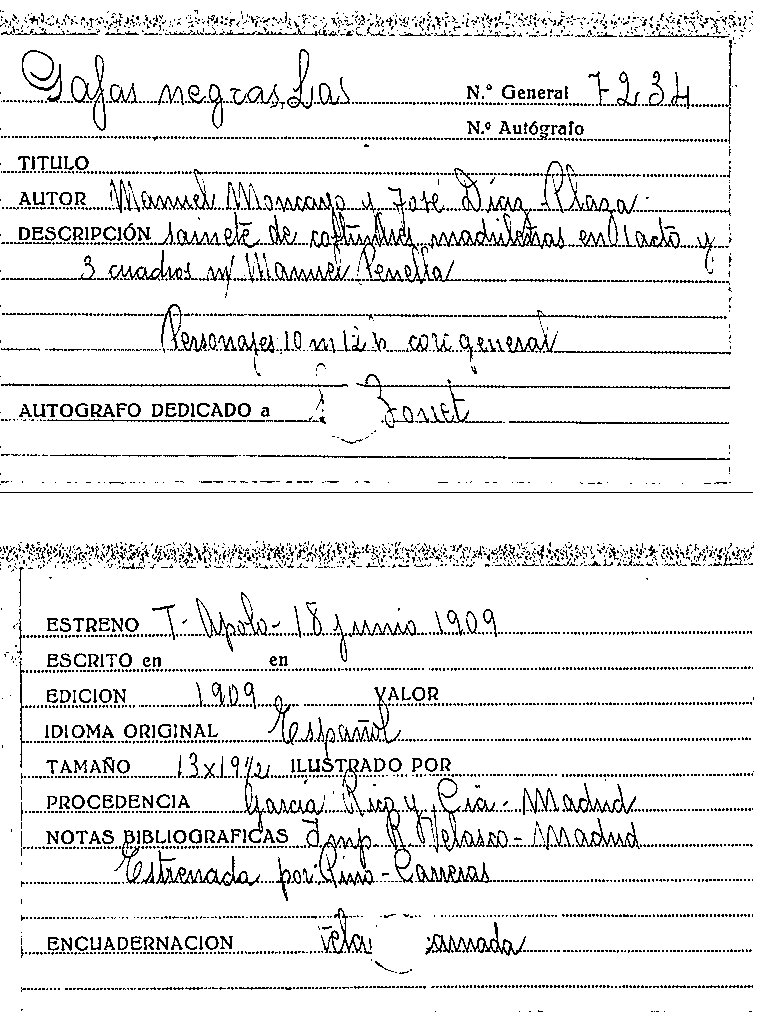 Gafas negras, Las
N.º General 7234
N.º Autógrafo
TITULO
AUTOR Manuel Moncayo y José Díaz Plaza
DESCRIPCIÓN sainete de costumbres madrileñas en 1 acto y
3 cuadros m/ Manuel Penella
Personajes 10 m 12 h coro general
AUTOGRAFO DEDICADO a
ESTRENO T. Apolo - 18 junio 1909
ESCRITO en en
EDICION 1909 VALOR
IDIOMA ORIGINAL Español
TAMAÑO 13x19½ ILUSTRADO POR
PROCEDENCIA García Rico y Cía - Madrid
NOTAS BIBLIOGRAFICAS Imp. R. Velasco - Madrid
Estrenada por: Pino - Carreras
ENCUADERNACION Tela